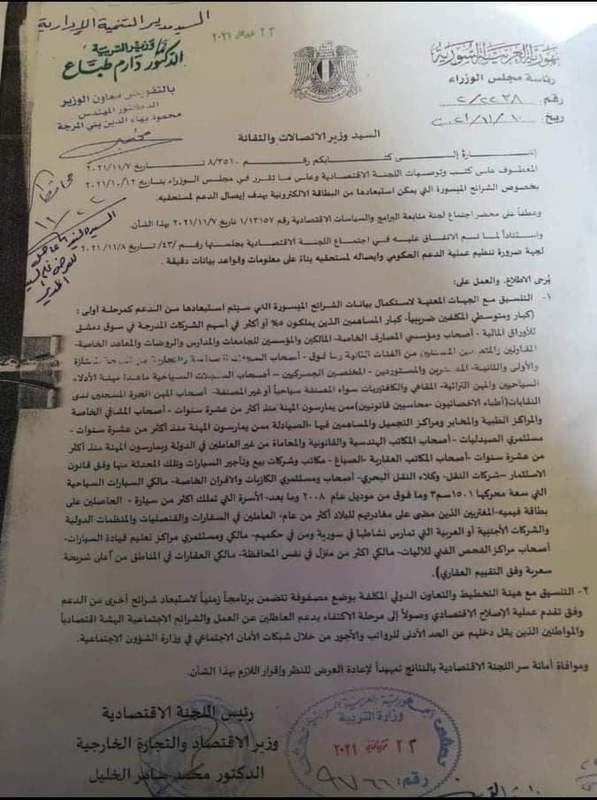 السيد مدير التنمية الإدارية
٢٢ تشرين ٢٠٢١
وزير التربية
الدكتور دارم طباع
بالتفويض معاون الوزير
الدكتور المهندس
محمود بهاء الدين بني المرجة
الجمهورية العربية السورية
رئاسة مجلس الوزراء
رقم ٢/٢٢٣٨
تاريخ ٢٠٢١/١١/١٠
السيد وزير الاتصالات والتقانة
إشارة إلى كتابكم رقم ٨/٣٥١٠ تاريخ ٢٠٢١/١١/٧
المعطوف على كتب وتوصيات اللجنة الاقتصادية وعلى ما تقرر في مجلس الوزراء بتاريخ ٢٠٢١/١٠/١٢
بخصوص الشرائح الميسورة التي يمكن استبعادها من البطاقة الالكترونية بهدف إيصال الدعم لمستحقيه.
وعطفاً على محضر اجتماع لجنة متابعة البرامج والسياسات الاقتصادية رقم ١/١٣١٥٧ تاريخ ٢٠٢١/١١/٧ بهذا الشأن.
واستناداً لما تم الاتفاق عليه في اجتماع اللجنة الاقتصادية بجلستها رقم /٤٣/ تاريخ ٢٠٢١/١١/٨
لجهة ضرورة تنظيم عملية الدعم الحكومي وايصاله لمستحقيه بناءً على معلومات وقواعد بيانات دقيقة.
يُرجى الاطلاع. والعمل على:
١- التنسيق مع الجهات المعنية لاستكمال بيانات الشرائح الميسورة التي سيتم استبعادها من الدعم كمرحلة أولى: (
كبار ومتوسطي المكلفين ضريبياً- كبار المساهمين الذين يملكون ٥% أو أكثر في أسهم الشركات المدرجة في سوق دمشق
للأوراق المالية- أصحاب ومؤسسي المصارف الخاصة- المالكين والمؤسسين للجامعات والمدارس والروضات والمعاهد الخاصة-
المقاولين من الفئات الثانية فما فوق- أصحاب والتجارية من الممتازة
والأولى والثانية- والمستوردين- المخلصين الجمركيين- أصحاب السجلات السياحية ماعدا مهنة الأدلاء
السياحيين والمهن التراثية- المقاهي والكافتيريات سواء المصنفة سياحياً أو غير المصنفة- أصحاب المهن الحرة المسجلين لدى
النقابات (أطباء الاختصاصيون- محاسبين قانونيين) ممن يمارسون المهنة منذ أكثر من عشرة سنوات- أصحاب المشافي الخاصة
والمراكز الطبية والمخابر ومراكز التجميل والمساهمين فيها- الصيادلة ممن يمارسون المهنة منذ أكثر من عشرة سنوات-
مستثمري الصيدليات- أصحاب المكاتب الهندسية والقانونية والمحاماة من غير العاملين في الدولة ويمارسون المهنة منذ أكثر
من عشرة سنوات- أصحاب المكاتب العقارية- الصياغ- مكاتب وشركات بيع وتأجير السيارات وتلك المحدثة منها وفق قانون
الاستثمار- شركات النقل- وكلاء النقل البحري- أصحاب ومستثمري الكازيات والافران الخاصة- مالكي السيارات السياحية
التي سعة محركها ١٥٠١ سم٣ وما فوق من موديل عام ٢٠٠٨ وما بعد- الأسرة التي تملك أكثر من سيارة- الحاصلين على
بطاقة فيميه- المغتربين الذين مضى على مغادرتهم للبلاد أكثر من عام- العاملين في السفارات والقنصليات والمنظمات الدولية
والشركات الأجنبية أو العربية التي تمارس نشاطها في سورية ومن في حكمهم- مالكي ومستثمري مراكز تعليم قيادة السيارات-
أصحاب مراكز الفحص الفني للآليات- مالكي أكثر من منزل في نفس المحافظة- مالكي العقارات في المناطق من أعلى شريحة
سعرية وفق التقييم العقاري).
٢- التنسيق مع هيئة التخطيط والتعاون الدولي المكلفة بوضع مصفوفة تتضمن برنامجاً زمنياً لاستبعاد شرائح أخرى من الدعم
وفق تقدم عملية الإصلاح الاقتصادي وصولاً إلى مرحلة الاكتفاء بدعم العاطلين عن العمل والشرائح الاجتماعية الهشة اقتصادياً
والمواطنين الذين يقل دخلهم عن الحد الأدنى للرواتب والأجور من خلال شبكات الأمان الاجتماعي في وزارة الشؤون الاجتماعية.
وموافاة أمانة سر اللجنة الاقتصادية بالنتائج تمهيداً لإعادة العرض للنظر وإقرار اللازم بهذا الشأن.
رئيس اللجنة الاقتصادية
وزير الاقتصاد والتجارة الخارجية
الدكتور محمد سامر الخليل
الجمهورية العربية السورية
وزارة التربية
٢٢ تشرين ٢٠٢١
رقم: